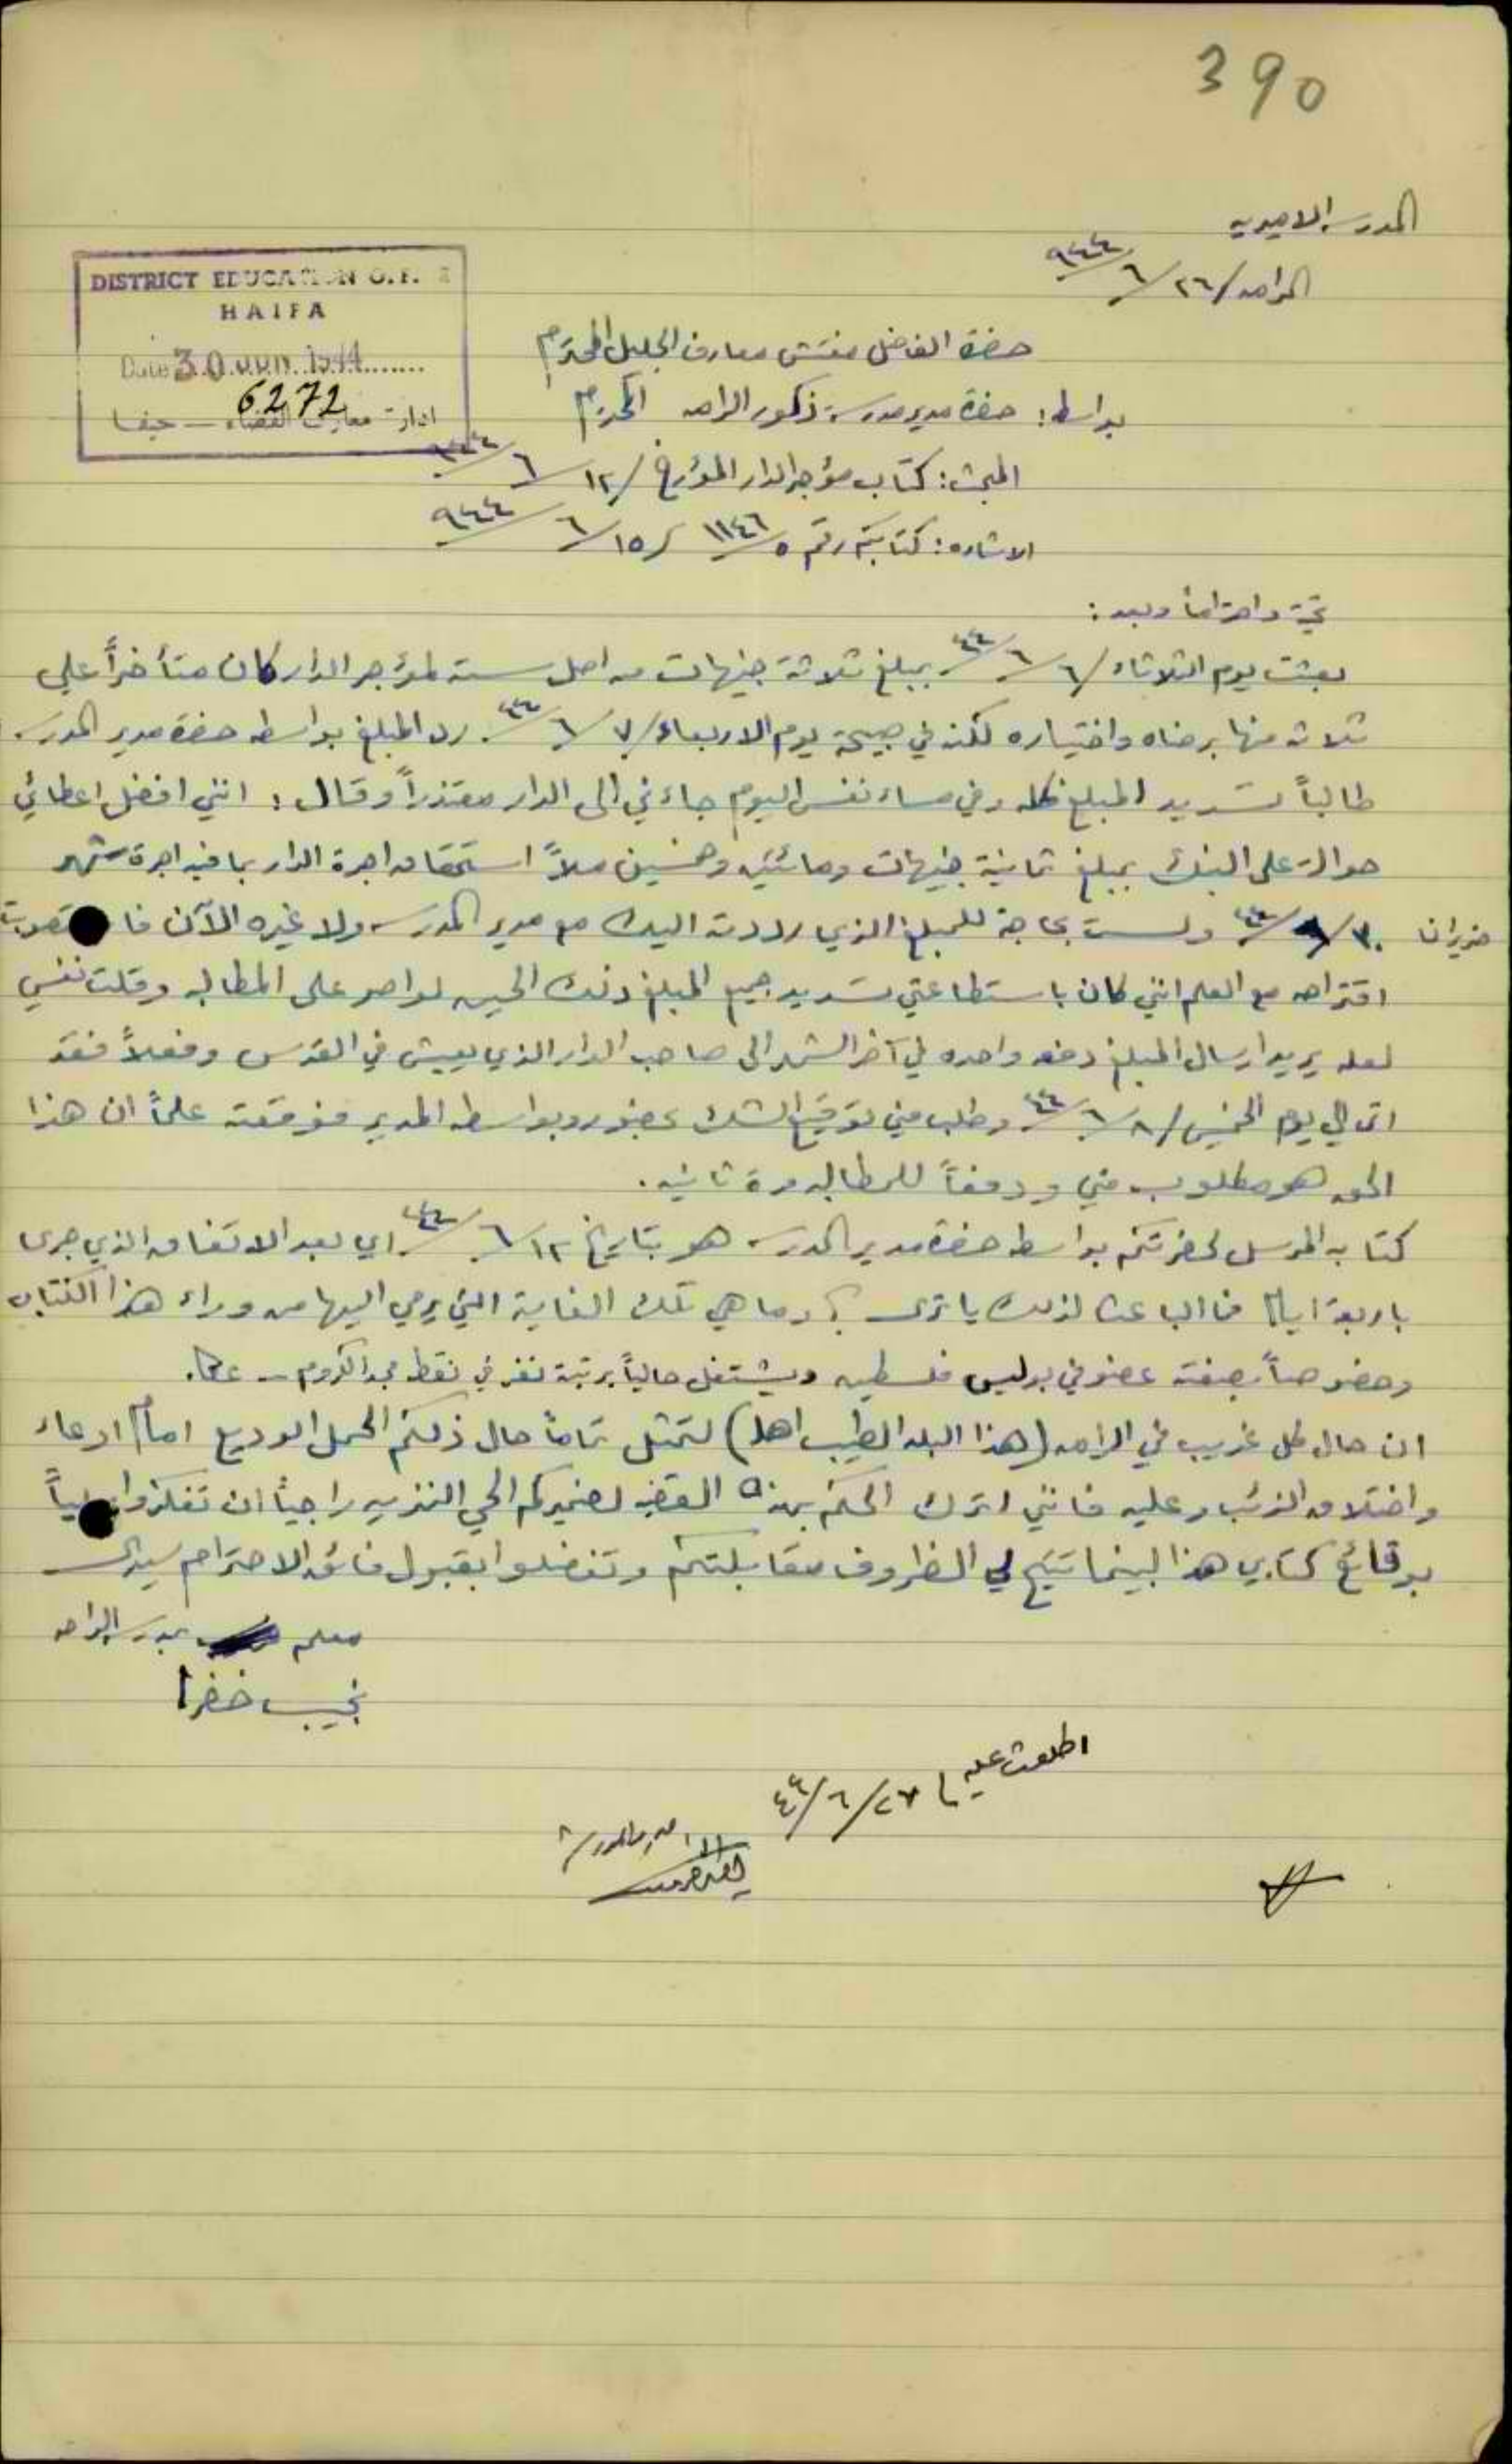 390
المدرسة الاميرية
الرامه ٢٦/٦/٩٤٤
DISTRICT EDUCATION OFF
HAIFA
Date 30 JUN 1944
6272
ادارة معارف القضاء — حيفا
حضرة الفاضل مفتش معارف الجليل المحترم
بواسطة: حضرة مدير مدرسة ذكور الرامه المحترم
المبحث: كتاب مؤجر الدار المؤرخ ١٢/٦/٩٤٤
الاشاره: كتابكم رقم ١١٤٦/٥ ١٥/٦/٩٤٤
تحية واحتراماً وبعد:
بعثت يوم الثلاثاء ٦/٦/٤٤ بمبلغ ثلاثة جنيهات من اصل ستة لمؤجر الدار كان متأخراً علي
ثلاثة منها برضاه واختياره لكنه في صبيحة يوم الاربعاء ٧/٦/٤٤ رد المبلغ بواسطه حضرة مدير المدرسة
طالباً تسديد المبلغ كله وفي مساء نفس اليوم جاءني الى الدار معتذراً وقال: انني افضل اعطائي
حوالة على البنك بمبلغ ثمانية جنيهات ومائتين وخمسين ملاً استحقاق اجرة الدار بما فيه اجرة شهر
حزيران ٣٠/٦/٤٤ ولست بحاجة للمبلغ الذي رددته اليك مع مدير المدرسة ولا غيره الآن فاستصوبت
اقتراحه مع العلم انني كان باستطاعتي تسديد جميع المبلغ ذلك الحين لو اصر على المطالبه وقلت نفسي
لعله يريد ارسال المبلغ دفعه واحده في آخر الشهر الى صاحب الدار الذي يعيش في القدس وفعلاً فقد
اتى الي يوم الخميس ٨/٦/٤٤ وطلب مني توقيع الشك بحضور وبواسطه المدير فوقعته علماً ان هذا
الحق هو مطلوب مني ودفعاً للمطالبه مرة ثانيه.
كتابه المرسل لحضرتكم بواسطة حضرة مدير المدرسة هو بتاريخ ١٢/٦/٤٤ اي بعد الاتفاق الذي جرى
باربعة ايام فما الباعث لذلك يا ترى ؟ وما هي تلك الغاية التي يرمي اليها من وراء هذا الكتاب
وخصوصاً بصفته عضو في بوليس فلسطين ويشتغل حالياً برتبة نفر في نقطة مجد الكروم - عكا.
ان حال كل غريب في الرامه (هذا البلد الطيب اهله) لتمثل تماماً حال ذلكم الحمل الوديع امام ادعاء
واختلاق الذئب وعليه فانني اترك الحكم بهذه القضية لضميركم الحي النزيه راجياً ان تفكروا ملياً
بوقائع كتابي هذا لبينما تتيح لي الظروف مقابلتكم وتفضلوا بقبول فائق الاحترام سيدي
معلم بمدرسة الرامه
نجيب خضرا
اطلعت عليه ٢٧/٦/٤٤
مدير المدرسة